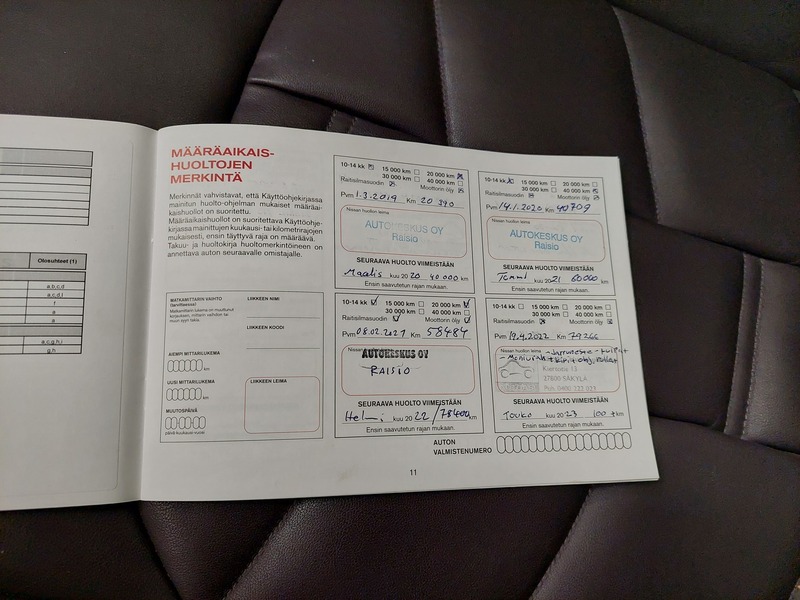 Olosuhteet (1)
a,b,c,d
a,c,d,i
f
a
a
a,c,g,h,i
g,h
MÄÄRÄAIKAIS-
HUOLTOJEN
MERKINTÄ
Merkinnät vahvistavat, että Käyttöohjekirjassa
mainitun huolto-ohjelman mukaiset määräai-
kaishuollot on suoritettu.
Määräaikaishuollot on suoritettava Käyttöohje-
kirjassa mainittujen kuukausi- tai kilometrirajojen
mukaisesti, ensin täyttyvä raja on määräävä.
Takuu- ja huoltokirja huoltomerkintöineen on
annettava auton seuraavalle omistajalle.
MATKAMITTARIN VAIHTO
(tarvittaessa)
Matkamittarin lukema on muuttunut
AIEMPI MITTARILUKEMA
km
UUSI MITTARILUKEMA
km
MUUTOSPÄIVÄ
päivä-kuukausi-vuosi
LIIKKEEN NIMI
LIIKKEEN KOODI
LIIKKEEN LEIMA
10-14 kk 15 000 km 20 000 km
30 000 km 40 000 km
Raitisilmasuodin Moottorin öljy
Pvm 1.3.2019 Km 20 390
Nissan huollon leima
AUTOKESKUS OY
Raisio
SEURAAVA HUOLTO VIIMEISTÄÄN
Maalis kuu 20 20 40 000 km
Ensin saavutetun rajan mukaan.
10-14 kk 15 000 km 20 000 km
30 000 km 40 000 km
Raitisilmasuodin Moottorin öljy
Pvm 14.1.2020 Km 40709
Nissan huollon leima
AUTOKESKUS OY
Raisio
SEURAAVA HUOLTO VIIMEISTÄÄN
Tammi kuu 2021 60000 km
Ensin saavutetun rajan mukaan.
10-14 kk 15 000 km 20 000 km
30 000 km 40 000 km
Raitisilmasuodin Moottorin öljy
Pvm 08.02.2021 Km 58484
Nissan huollon leima
AUTOKESKUS OY
RAISIO
SEURAAVA HUOLTO VIIMEISTÄÄN
Helmi kuu 20 22 / 78400 km
Ensin saavutetun rajan mukaan.
10-14 kk 15 000 km 20 000 km
30 000 km 40 000 km
Raitisilmasuodin Moottorin öljy
Pvm 19.4.2022 Km 79266
Nissan huollon leima
27800 SÄKYLÄ
Puh. 0400 722 023
SEURAAVA HUOLTO VIIMEISTÄÄN
Touko kuu 20 23 100 t km
Ensin saavutetun rajan mukaan.
AUTON
VALMISTENUMERO
11